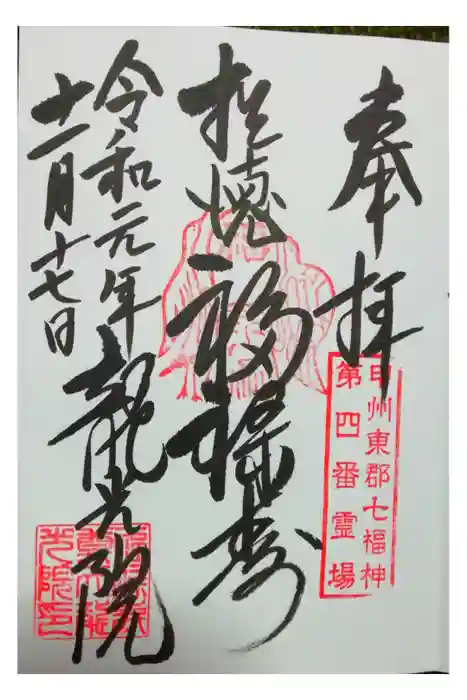 奉拝
甲州東郡七福神
第四番霊場
福禄寿
令和元年
十一月十七日
龍光院